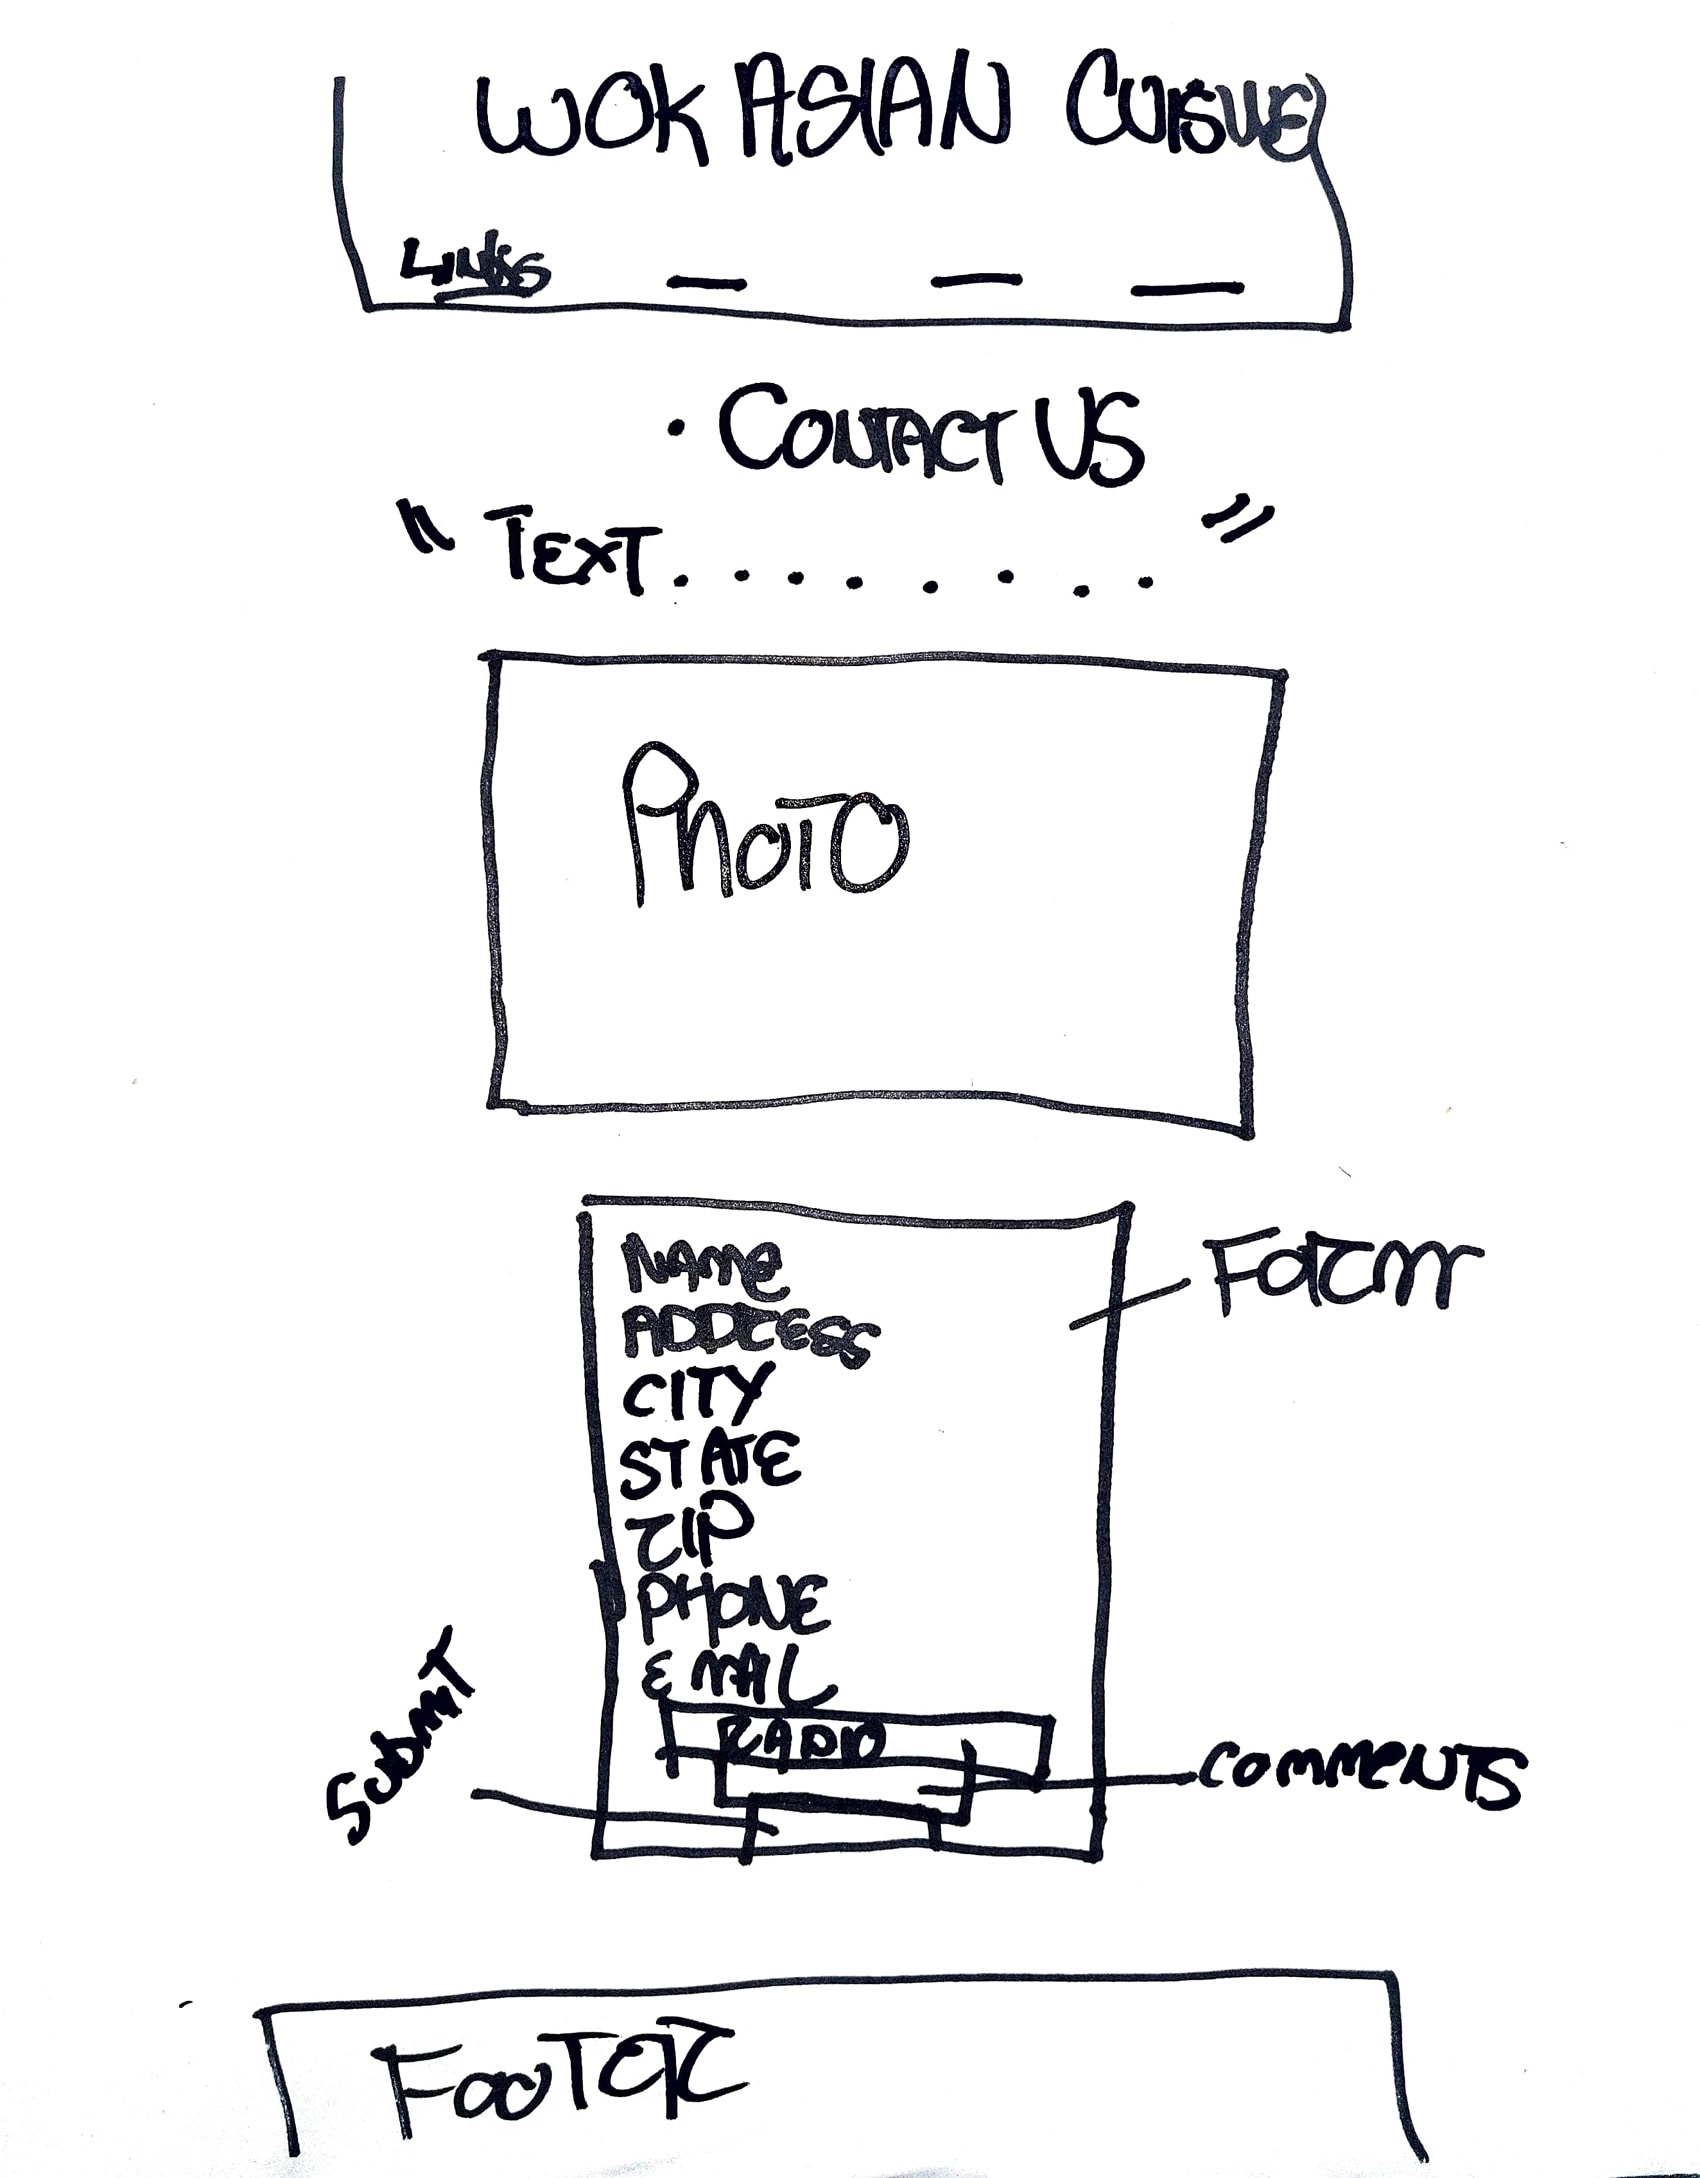 WOK ASIAN CUISINE
LINKS
• CONTACT US
" TEXT......... "
PHOTO
FORM
NAME
ADDRESS
CITY
STATE
ZIP
PHONE
EMAIL
RADIO
SUBMIT
COMMENTS
FOOTER